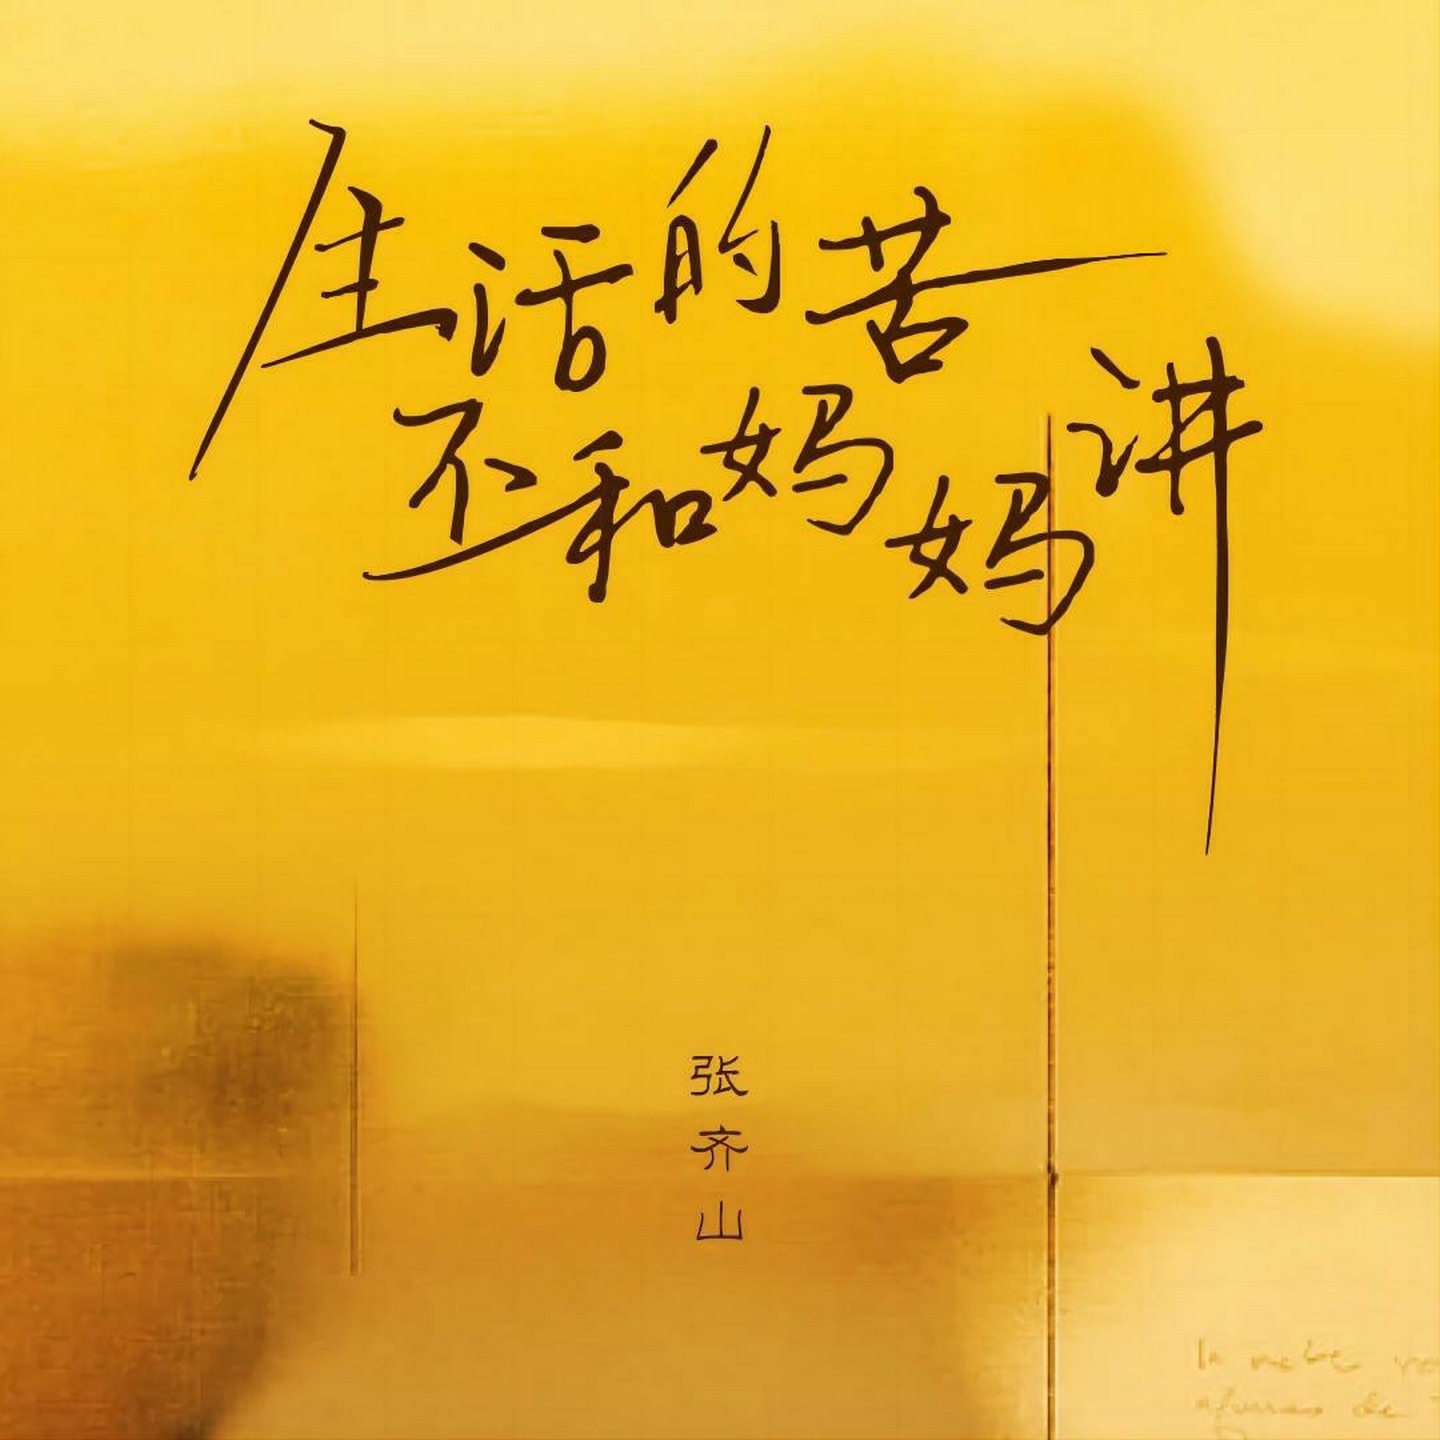 生活的苦
不和妈妈讲
张齐山